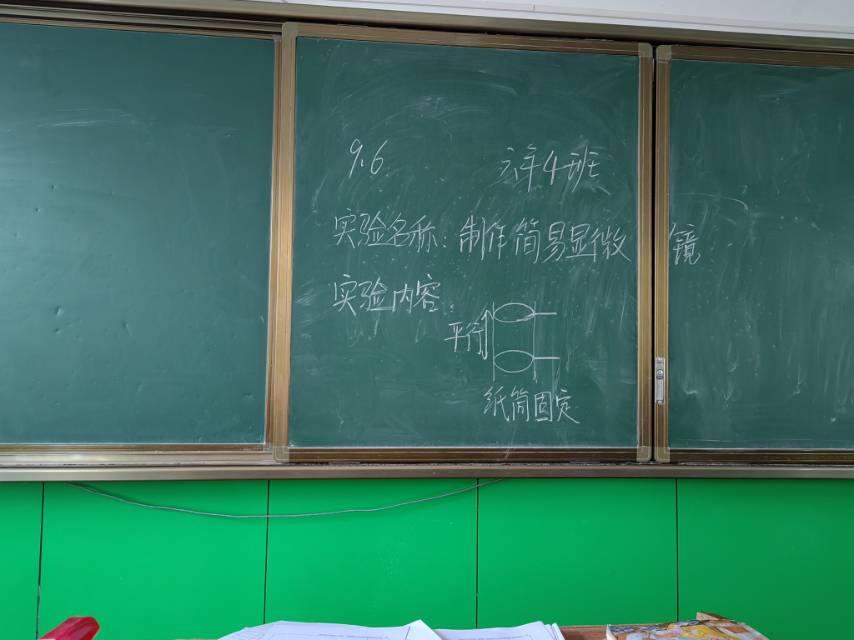 9.6 六年4班
实验名称:制作简易显微镜
实验内容:
平行
纸筒固定